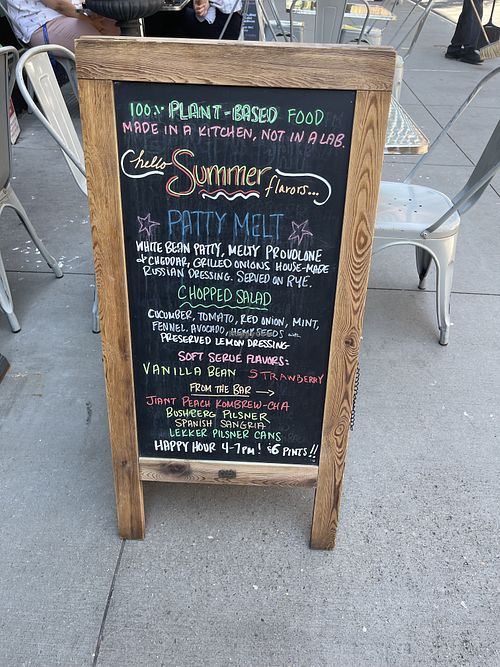 100% PLANT-BASED FOOD
MADE IN A KITCHEN, NOT IN A LAB.
hello Summer flavors...
PATTY MELT
WHITE BEAN PATTY, MELTY PROVOLONE
& CHEDDAR, GRILLED ONIONS HOUSE-MADE
RUSSIAN DRESSING. SERVED ON RYE.
CHOPPED SALAD
CUCUMBER, TOMATO, RED ONION, MINT,
FENNEL, AVOCADO, HEMP SEEDS with
PRESERVED LEMON DRESSING
SOFT SERVE FLAVORS:
VANILLA BEAN STRAWBERRY
FROM THE BAR →
JIANT PEACH KOMBREW-CHA
BUSHBERG PILSNER
SPANISH SANGRIA
LEKKER PILSNER CANS
HAPPY HOUR 4-7PM! $6 PINTS!!